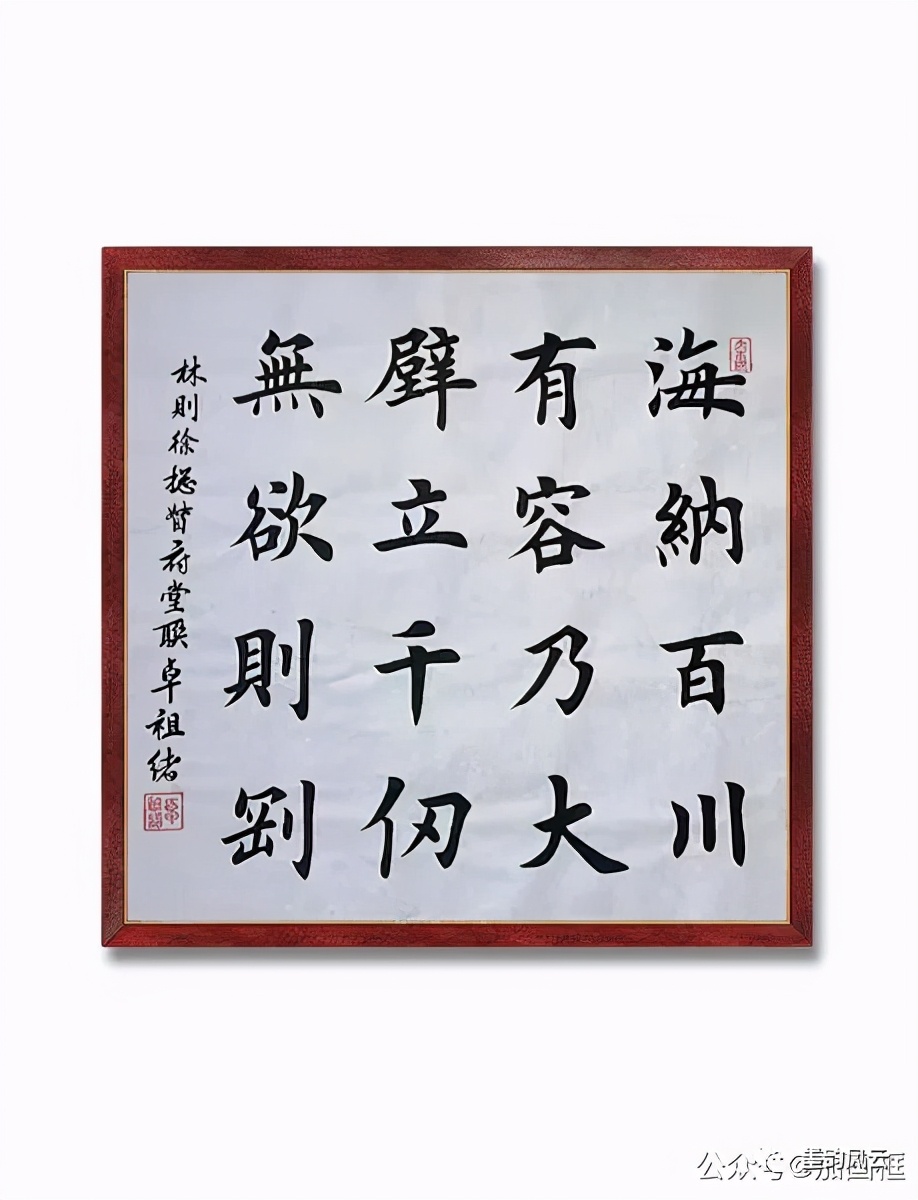 海納百川
有容乃大
壁立千仞
無欲則剛
林則徐總督府堂聯卓祖緒
公众号